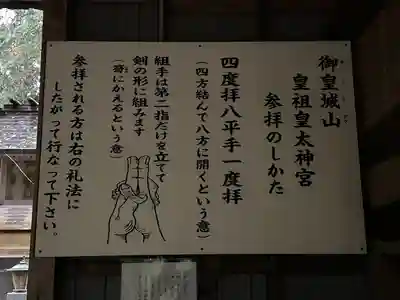 御皇城山
皇祖皇太神宮
参拝のしかた
四度拝八平手一度拝
(四方結んで八方に開くという意)
組手は第二指だけを立てて
剣の形に組みます
(霊にかえるという意)
参拝される方は右の礼法に
したがって行なって下さい。